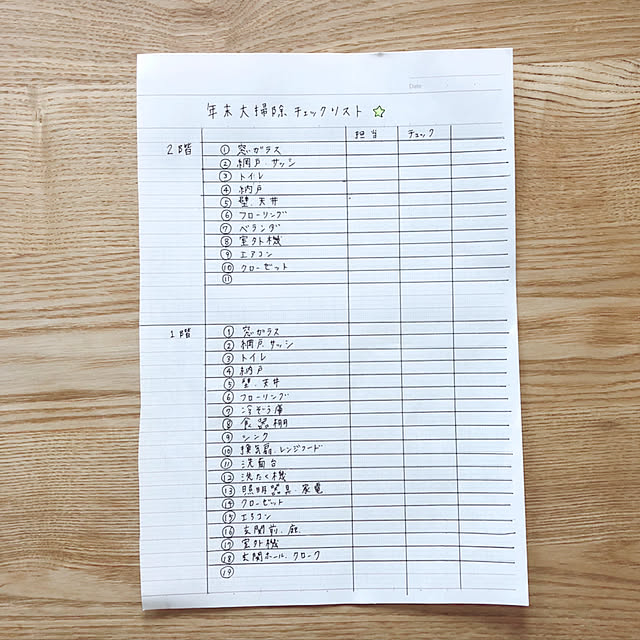 Date
年末大掃除チェックリスト
担当 チェック
2階
① 窓ガラス
② 網戸.サッシ
③ トイレ
④ 納戸
⑤ 壁.天井
⑥ フローリング
⑦ ベランダ
⑧ 室外機
⑨ エアコン
⑩ クローゼット
⑪
1階
① 窓ガラス
② 網戸.サッシ
③ トイレ
④ 納戸
⑤ 壁.天井
⑥ フローリング
⑦ 冷ぞう庫
⑧ 食器棚
⑨ シンク
⑩ 換気扇.レンジフード
⑪ 洗面台
⑫ 洗たく機
⑬ 照明器具.家電
⑭ クローゼット
⑮ エアコン
⑯ 玄関前.庭
⑰ 室外機
⑱ 玄関ホール.クローク
⑲